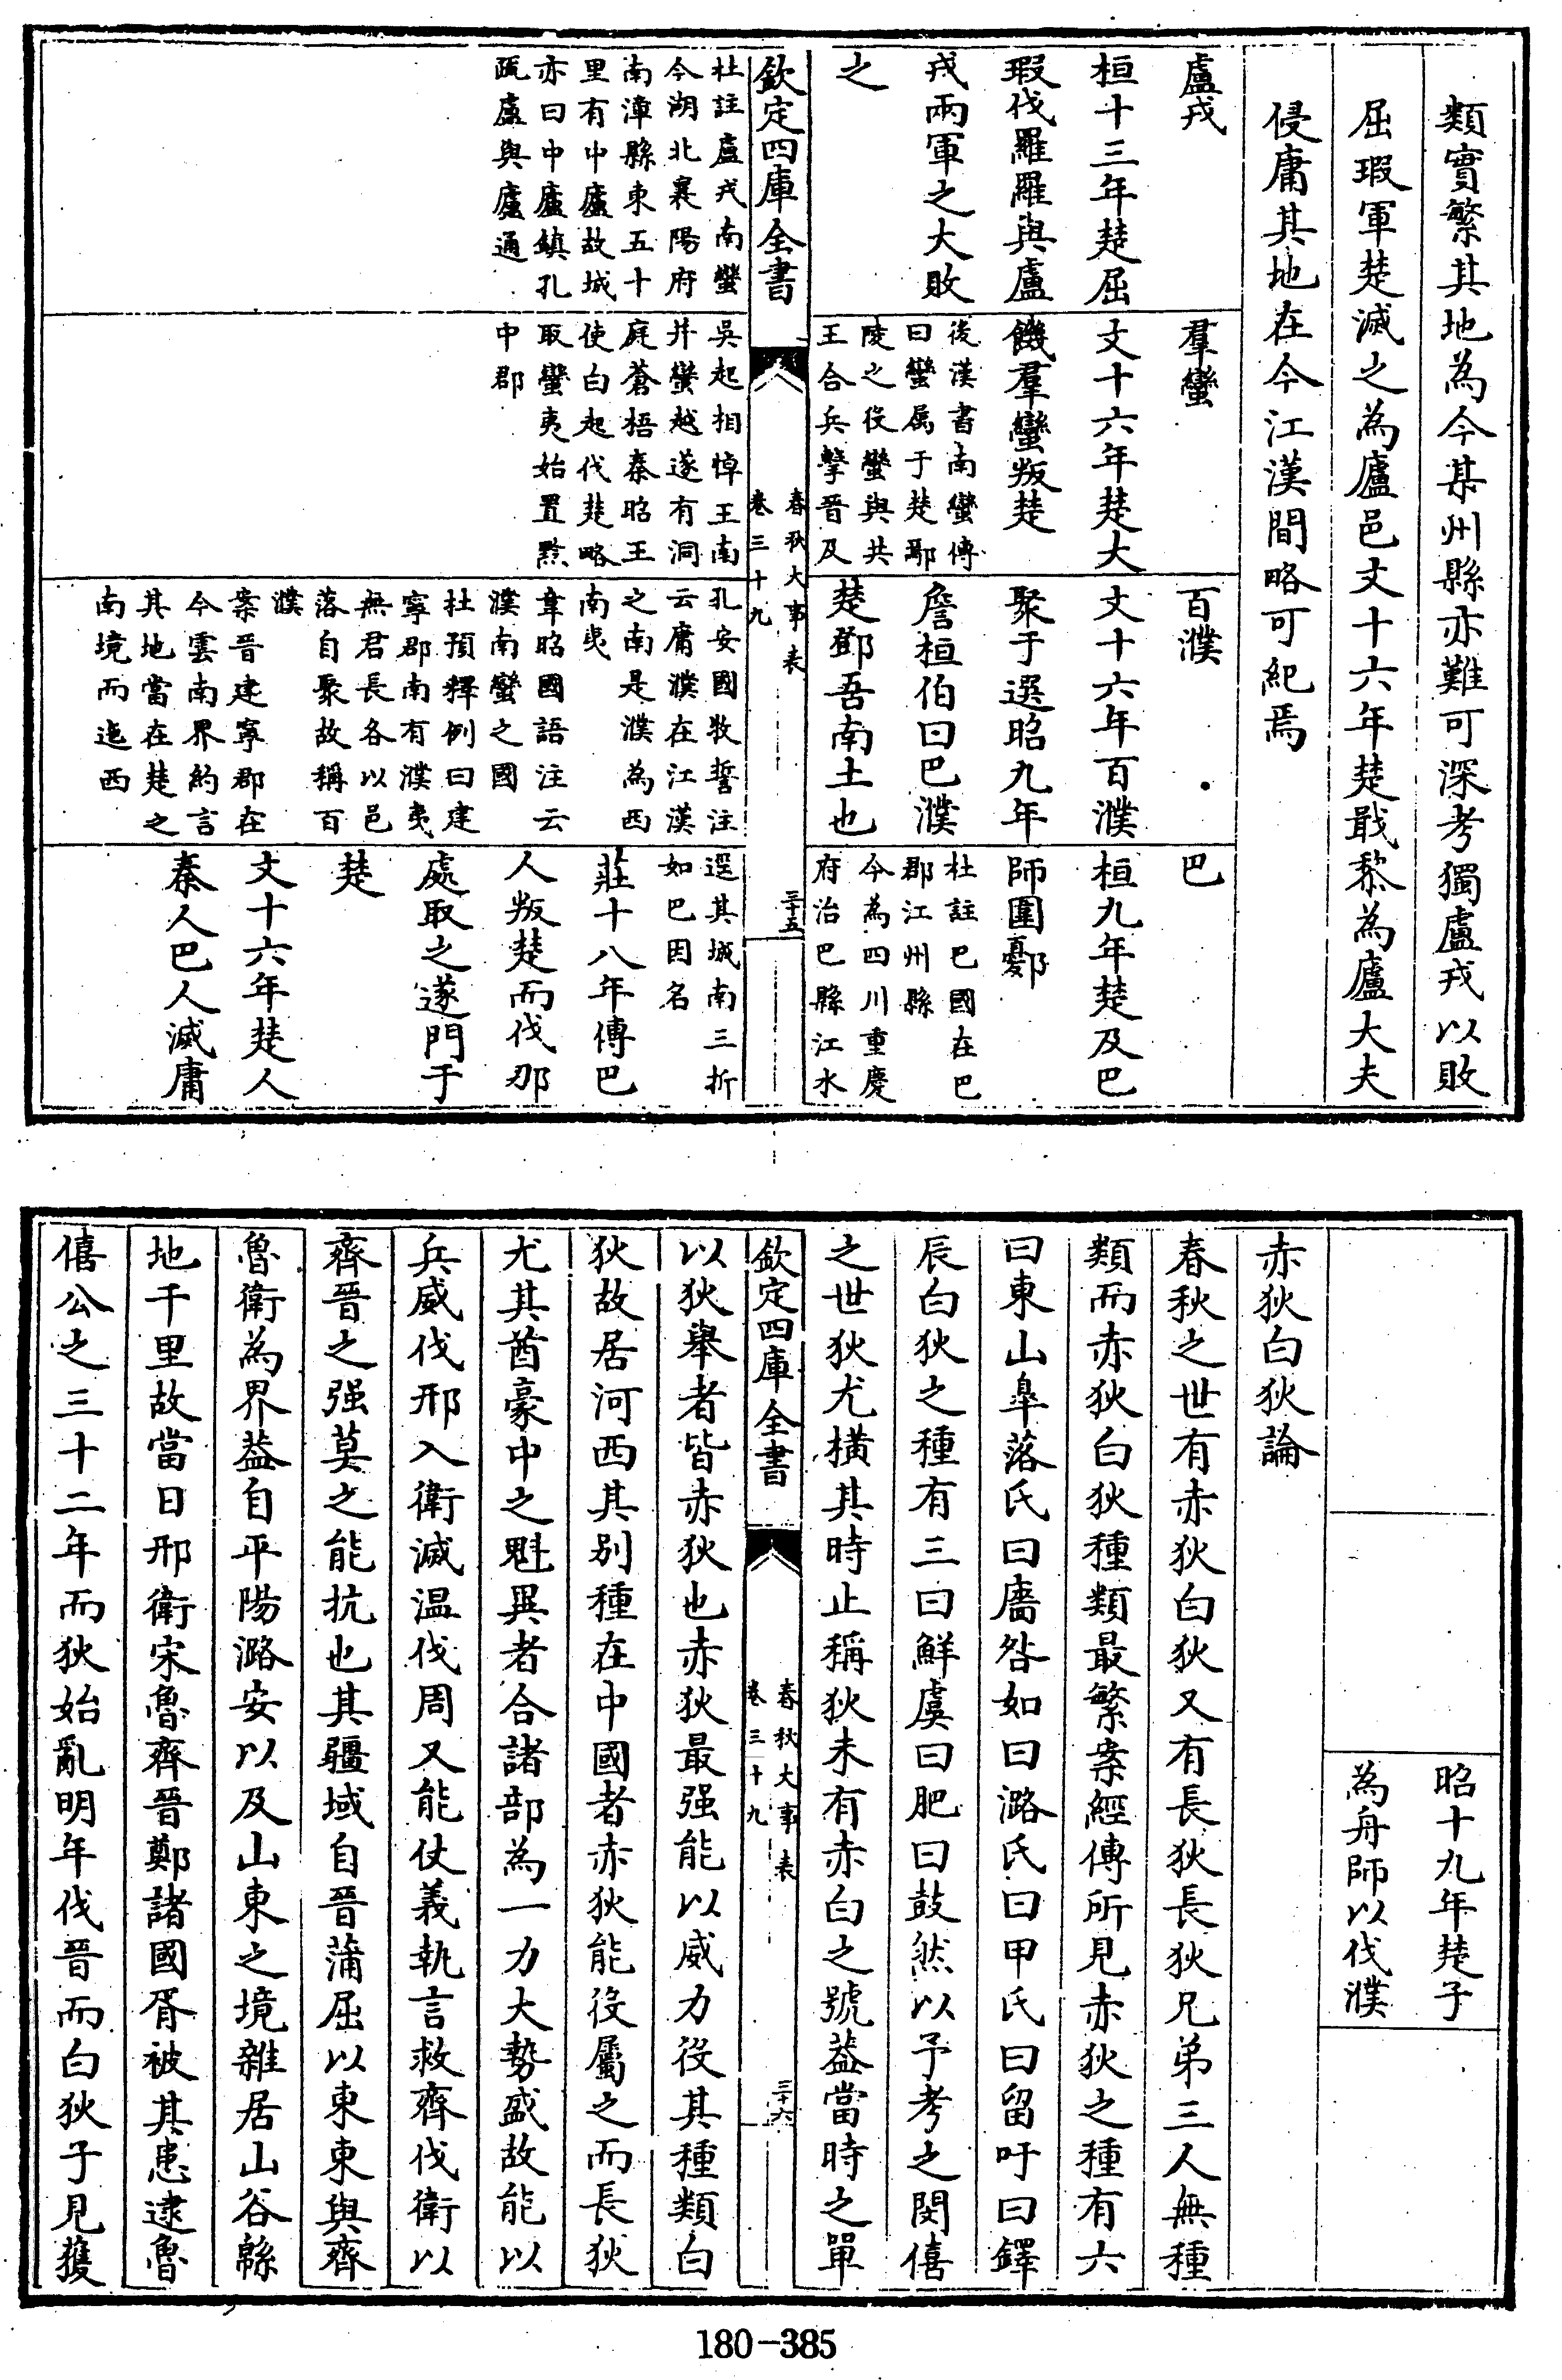 類實繁其地為今某州縣亦難可深考獨盧戎以敗
屈瑕軍楚滅之為廬邑文十六年楚戢黎為廬大夫
侵庸其地在今江漢間略可紀焉
盧戎
桓十三年楚屈
瑕伐羅羅與盧
戎兩軍之大敗
之
杜註盧戎南蠻
今湖北襄陽府
南漳縣東五十
里有中廬故城
亦曰中廬鎮孔
疏盧與廬通
羣蠻
文十六年楚大
饑羣蠻叛楚
後漢書南蠻傳
曰蠻属于楚鄢
陵之役蠻與共
王合兵擊晉及
吳起相悼王南
并蠻越遂有洞
庭蒼梧秦昭王
使白起伐楚略
取蠻夷始置黔
中郡
百濮
文十六年百濮
聚于選昭九年
詹桓伯曰巴濮
楚鄧吾南土也
孔安國牧誓注
云庸濮在江漢
之南是濮為西
南夷
韋昭國語注云
濮南蠻之國
杜預釋例曰建
寧郡南有濮夷
無君長各以邑
落自聚故稱百
濮
案晉建寧郡在
今雲南界約言
其地當在楚之
南境而迤西
巴
桓九年楚及巴
師圍鄾
杜註巴國在巴
郡江州縣
今為四川重慶
府治巴縣江水
逕其城南三折
如巴因名
莊十八年傳巴
人叛楚而伐那
處取之遂門于
楚
文十六年楚人
秦人巴人滅庸
欽定四庫全書
春秋大事表
卷三十九
三十五
昭十九年楚子
為舟師以伐濮
赤狄白狄論
春秋之世有赤狄白狄又有長狄長狄兄弟三人無種
類而赤狄白狄種類最繁案經傳所見赤狄之種有六
曰東山皐落氏曰廧咎如曰潞氏曰甲氏曰留吁曰鐸
辰白狄之種有三曰鮮虞曰肥曰鼓然以予考之閔僖
之世狄尤橫其時止稱狄未有赤白之號葢當時之單
欽定四庫全書
春秋大事表
卷三十九
三十六
以狄舉者皆赤狄也赤狄最强能以威力役其種類白
狄故居河西其別種在中國者赤狄能役屬之而長狄
尤其酋豪中之魁異者合諸部為一力大勢盛故能以
兵威伐邢入衛滅温伐周又能仗義執言救齊伐衛以
齊晉之强莫之能抗也其疆域自晉蒲屈以東東與齊
魯衛為界葢自平陽潞安以及山東之境雜居山谷緜
地千里故當日邢衛宋魯齊晉鄭諸國胥被其患逮魯
僖公之三十二年而狄始亂明年伐晉而白狄子見獲
180-385